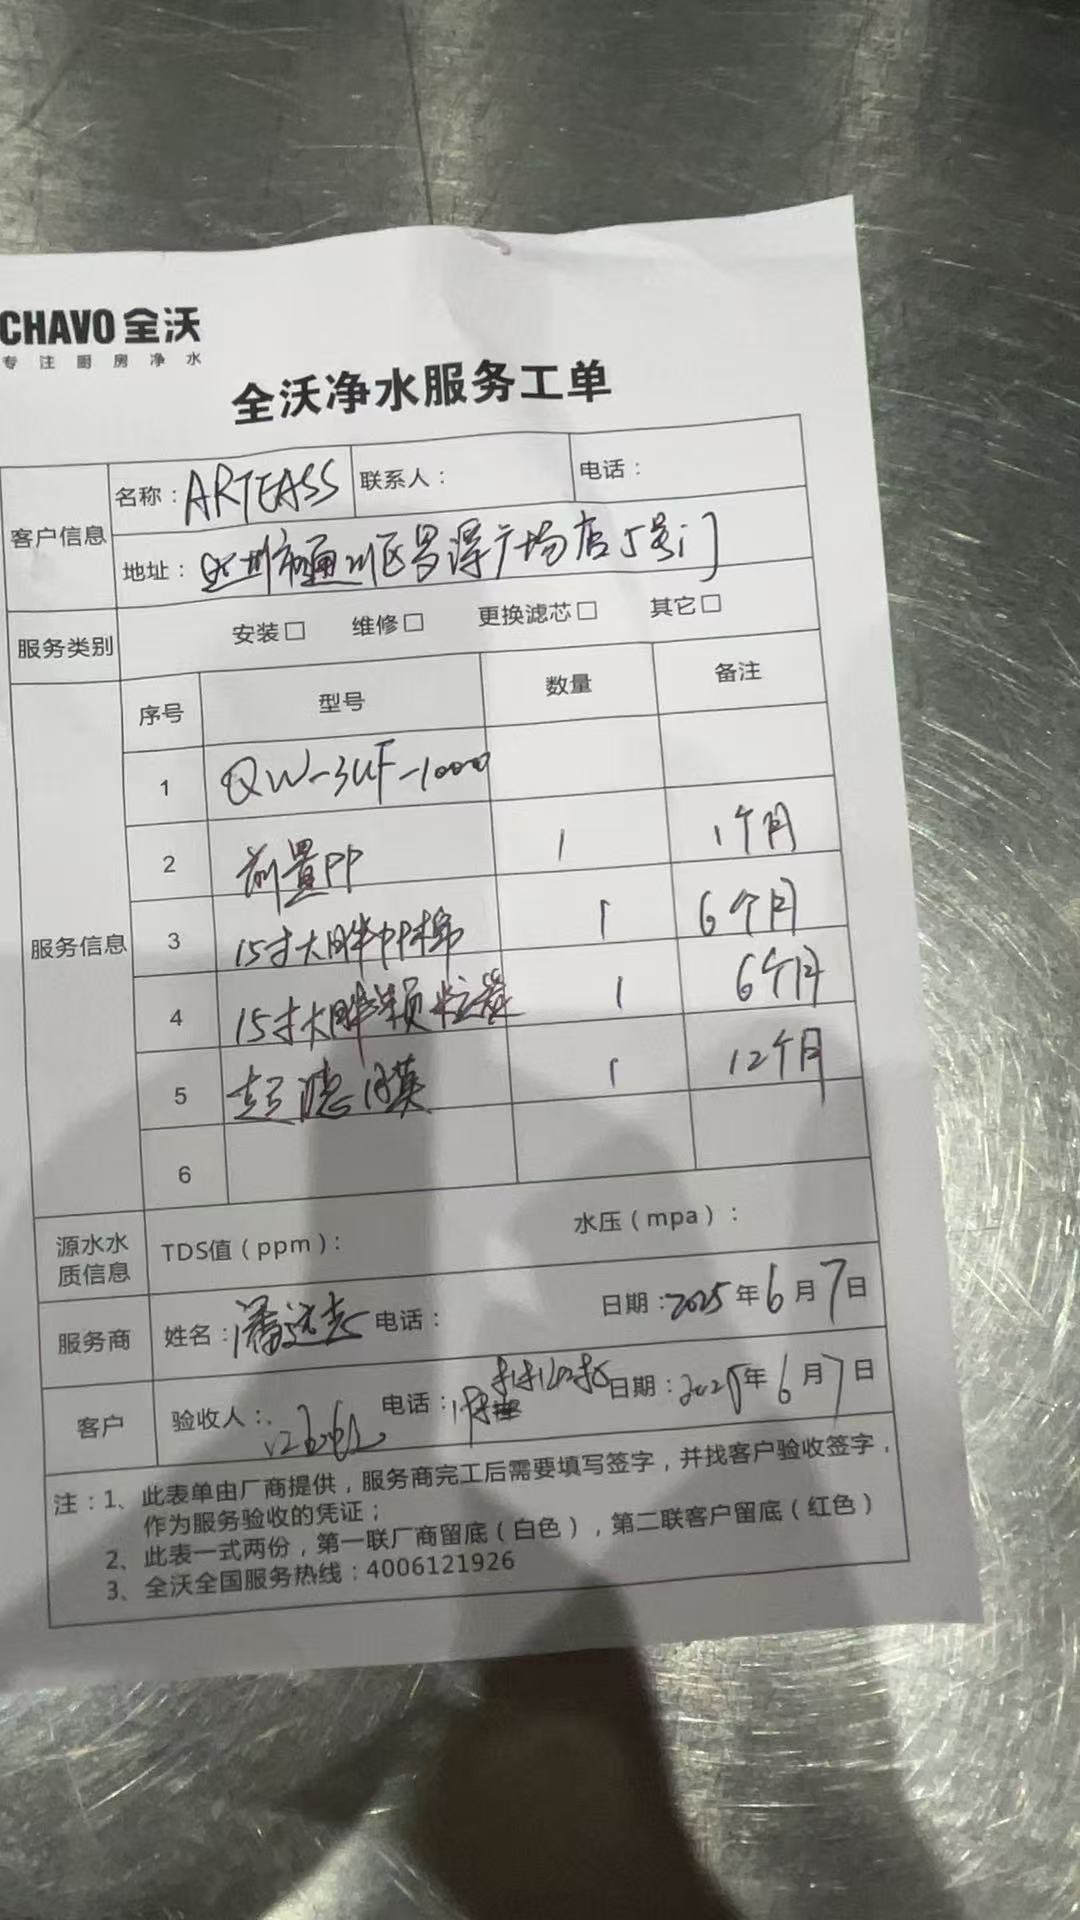 CHAVO 全沃
专注厨房净水
全沃净水服务工单
客户信息 名称：ARTEASG 联系人： 电话：
地址：市通川区 广场店5号门
服务类别 安装□ 维修□ 更换滤芯□ 其它□
服务信息 序号 型号 数量 备注
1 QW-3UF-1000
2 前置PP 1 1个月
3 15寸大胖PP棉 1 6个月
4 15寸大胖颗粒炭 1 6个月
5 超滤膜 1 12个月
6
源水水质信息 TDS值（ppm）： 水压（mpa）：
服务商 姓名：潘远志 电话： 日期：2025年6月7日
客户 验收人： 电话： 日期：2025年6月7日
注：1、此表单由厂商提供，服务商完工后需要填写签字，并找客户验收签字，
作为服务验收的凭证；
2、此表一式两份，第一联厂商留底（白色），第二联客户留底（红色）
3、全沃全国服务热线：4006121926